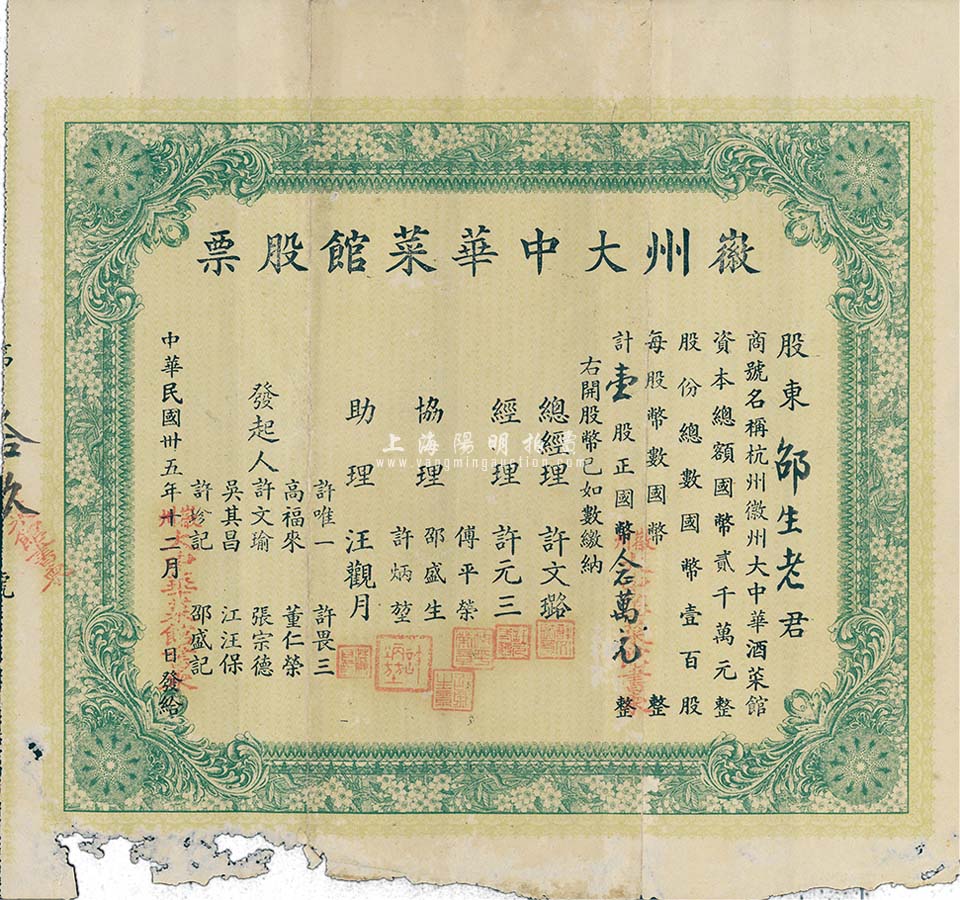 徽州大中華菜館股票
股東邵生老君
商號名稱杭州徽州大中華酒菜館
資本總額國幣貳千萬元整
股份總數國幣壹百股
每股幣數國幣 整
計壹股正國幣合萬元整
右開股幣已如數繳納
總經理 許文璐
經理 許元三
傅平榮
協理 邵盛生
許炳堃
助理 汪觀月
發起人
許唯一 許畏三
高福來 董仁榮
許文瑜 張宗德
吳其昌 江汪保
許珍記 邵盛記
中華民國卅五年十二月 日發給
第拾玖號
上海陽明拍賣
www.yangmingauction.com